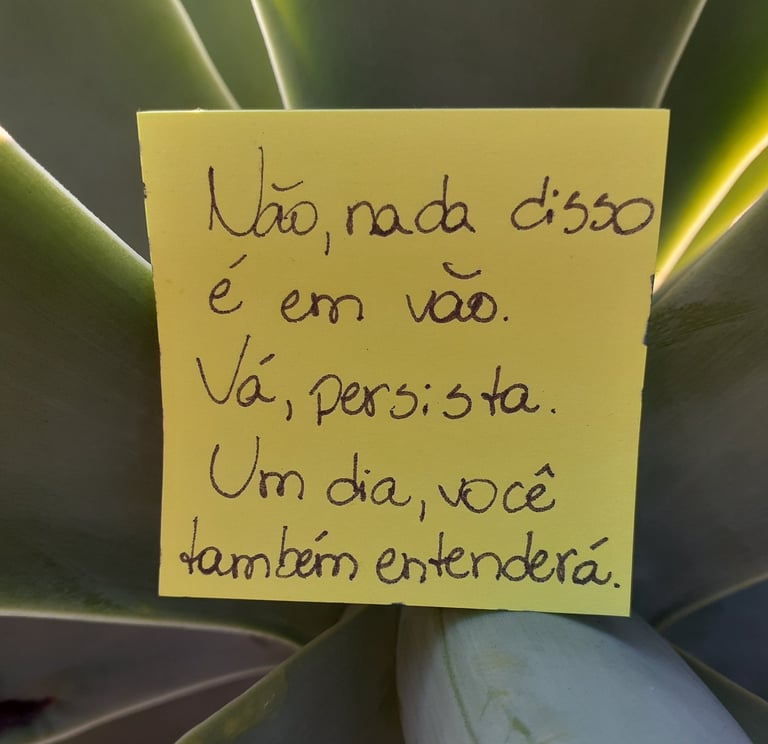 Não, nada disso
é em vão.
Vá, persista.
Um dia, você
também entenderá.